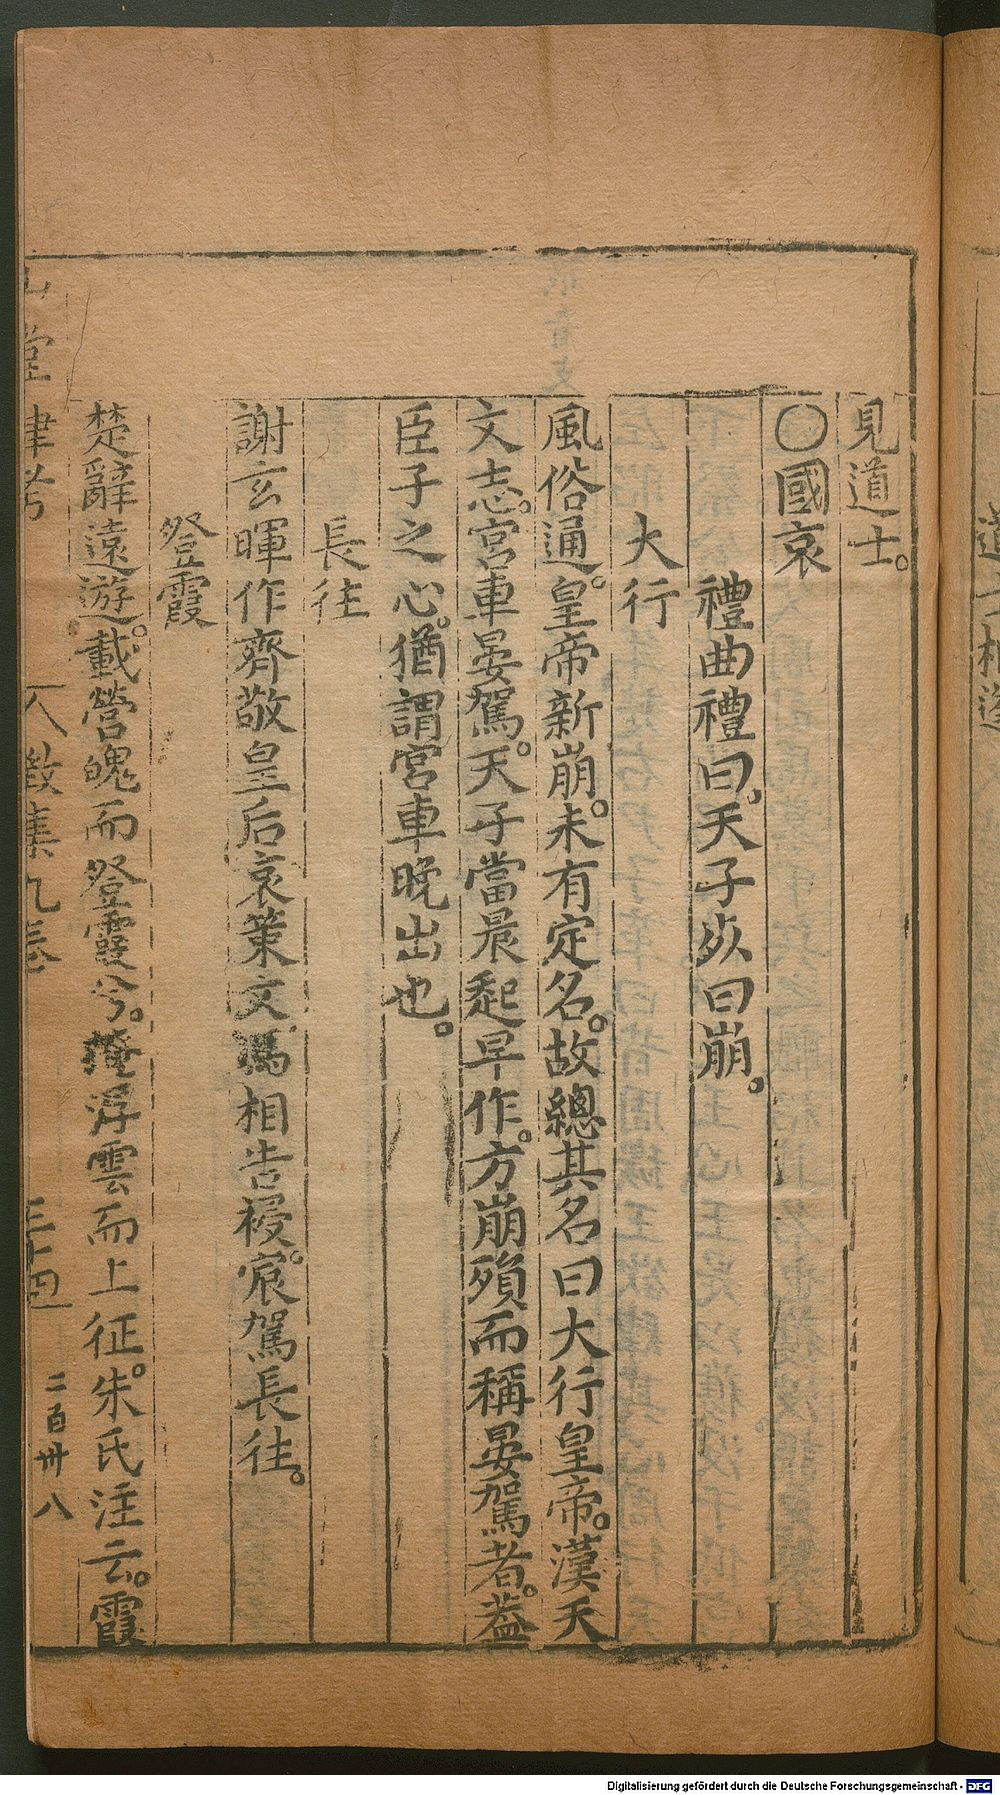 見道士。
〇國哀
禮曲禮曰。天子死曰崩。
大行
風俗通。皇帝新崩。未有定名。故總其名曰大行皇帝。漢天
文志。宮車晏駕。天子當晨起早作。方崩殞而稱晏駕者。葢
臣子之心。猶謂宮車晚出也。
長往
謝玄暉作齊敬皇后哀策文。馮相告祲。宸駕長往。
登霞
楚辭遠遊。載營魄而登霞兮。掩浮雲而上征。朱氏注云。霞
堂肆考
八 徵集九卷
三十四
二百卅八
Digitalisierung gefördert durch die Deutsche Forschungsgemeinschaft - DFG